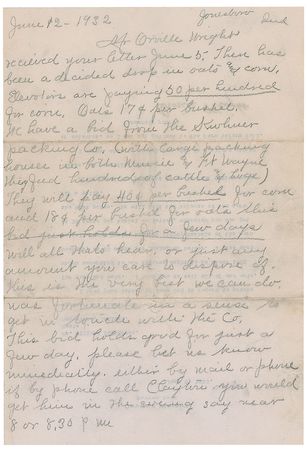 June 12-1932 Jonesboro Ind
Mr Orville Wright
received your letter June 5. There has
been a decided drop in oats & corn.
Elevators are paying 50 per hundred
for corn. Oats 17¢ per bushel.
We have a bid from the
packing Co. (with large packing
houses in both Muncie & Ft Wayne
they feed hundred of cattle & hogs)
They will pay 40¢ per bushel for corn
and 18¢ per bushel for oats this
bid just holds for a few days
will all thats here, or just any
amount you care to dispose of.
this is the very best we can do.
was fortunate in a sense to
get in touch with the Co.
This bid holds good for just a
few day. please let us know
immediately. either by mail or phone
if by phone call Clayton you would
get him in the evening say near
8 or 8:30 P m